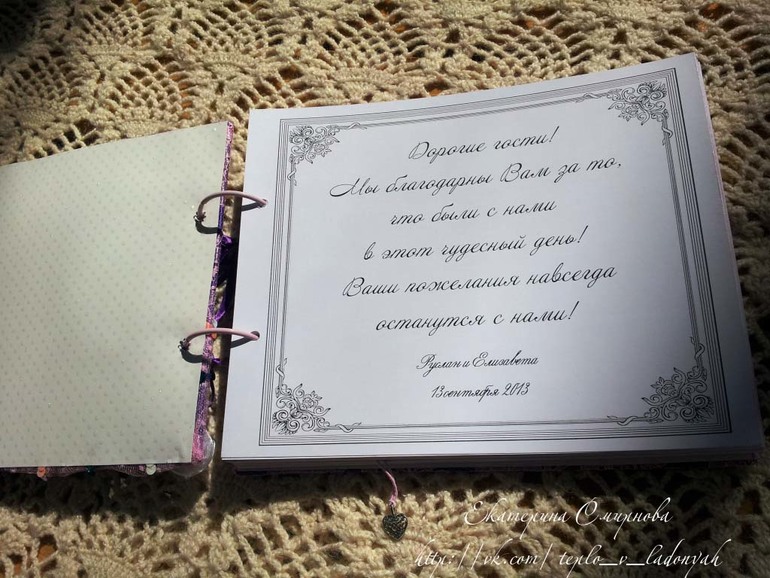 Дорогие гости!
Мы благодарны Вам за то,
что были с нами
в этот чудесный день!
Ваши пожелания навсегда
останутся с нами!
Руслан и Елизавета
13 сентября 2013
Екатерина Смирнова
http://vk.com/teplo_v_ladonyah